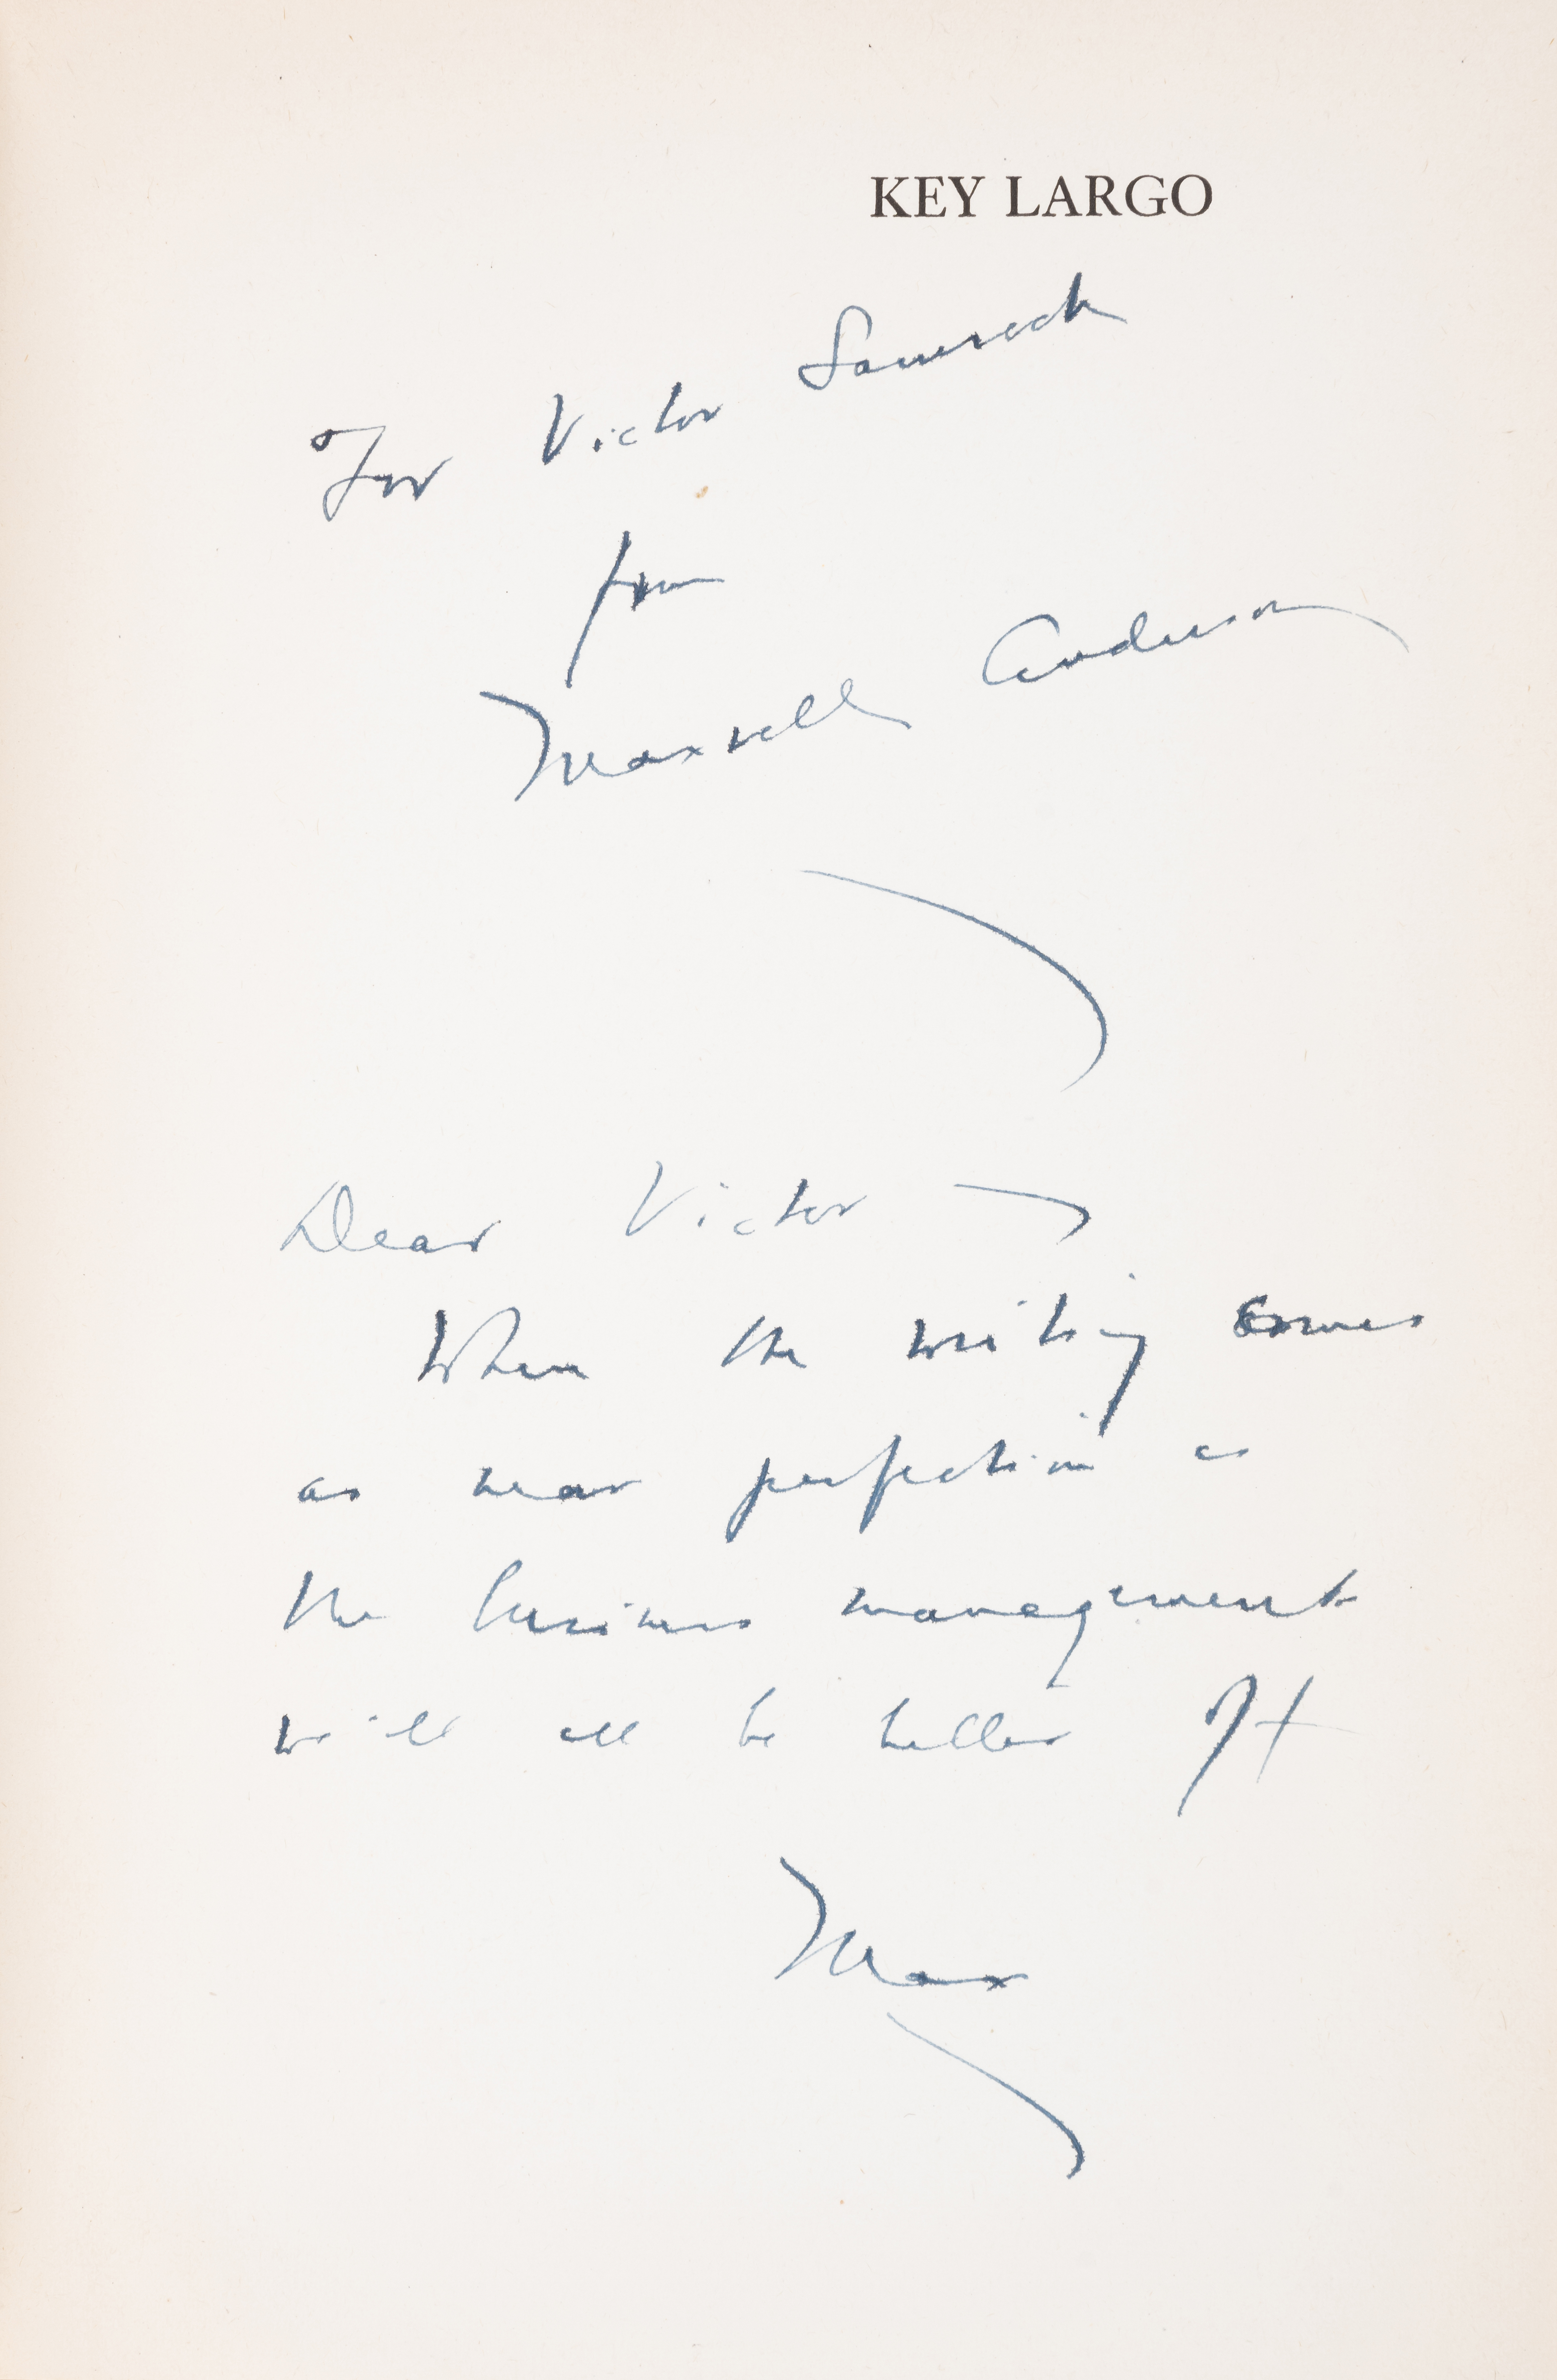 KEY LARGO
For Victor Samrock
from
Maxwell Anderson
Dear Victor —
When the writing comes
as near perfection as
the business management
will all be better off
Max